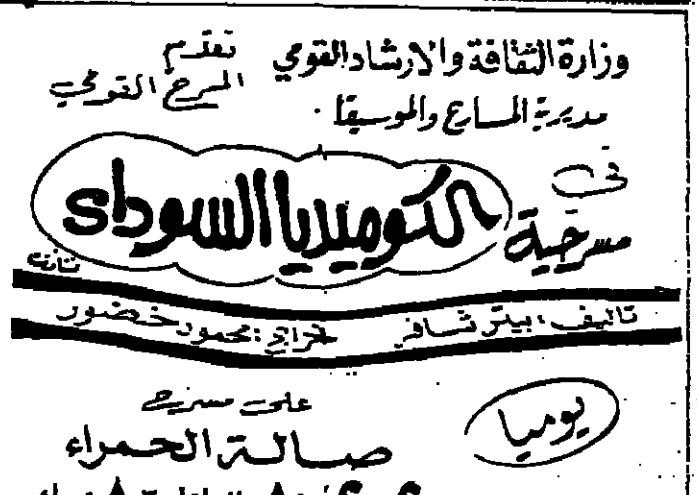 وزارة الثقافة والارشاد القومي تقدم
مديرية المسارح والموسيقا . المسرح القومي
في
مسرحية الكوميديا السوداء
تأليف : بيتر شافر اخراج : محمود خضور
يوميا
على مسرح
صالة الحمراء